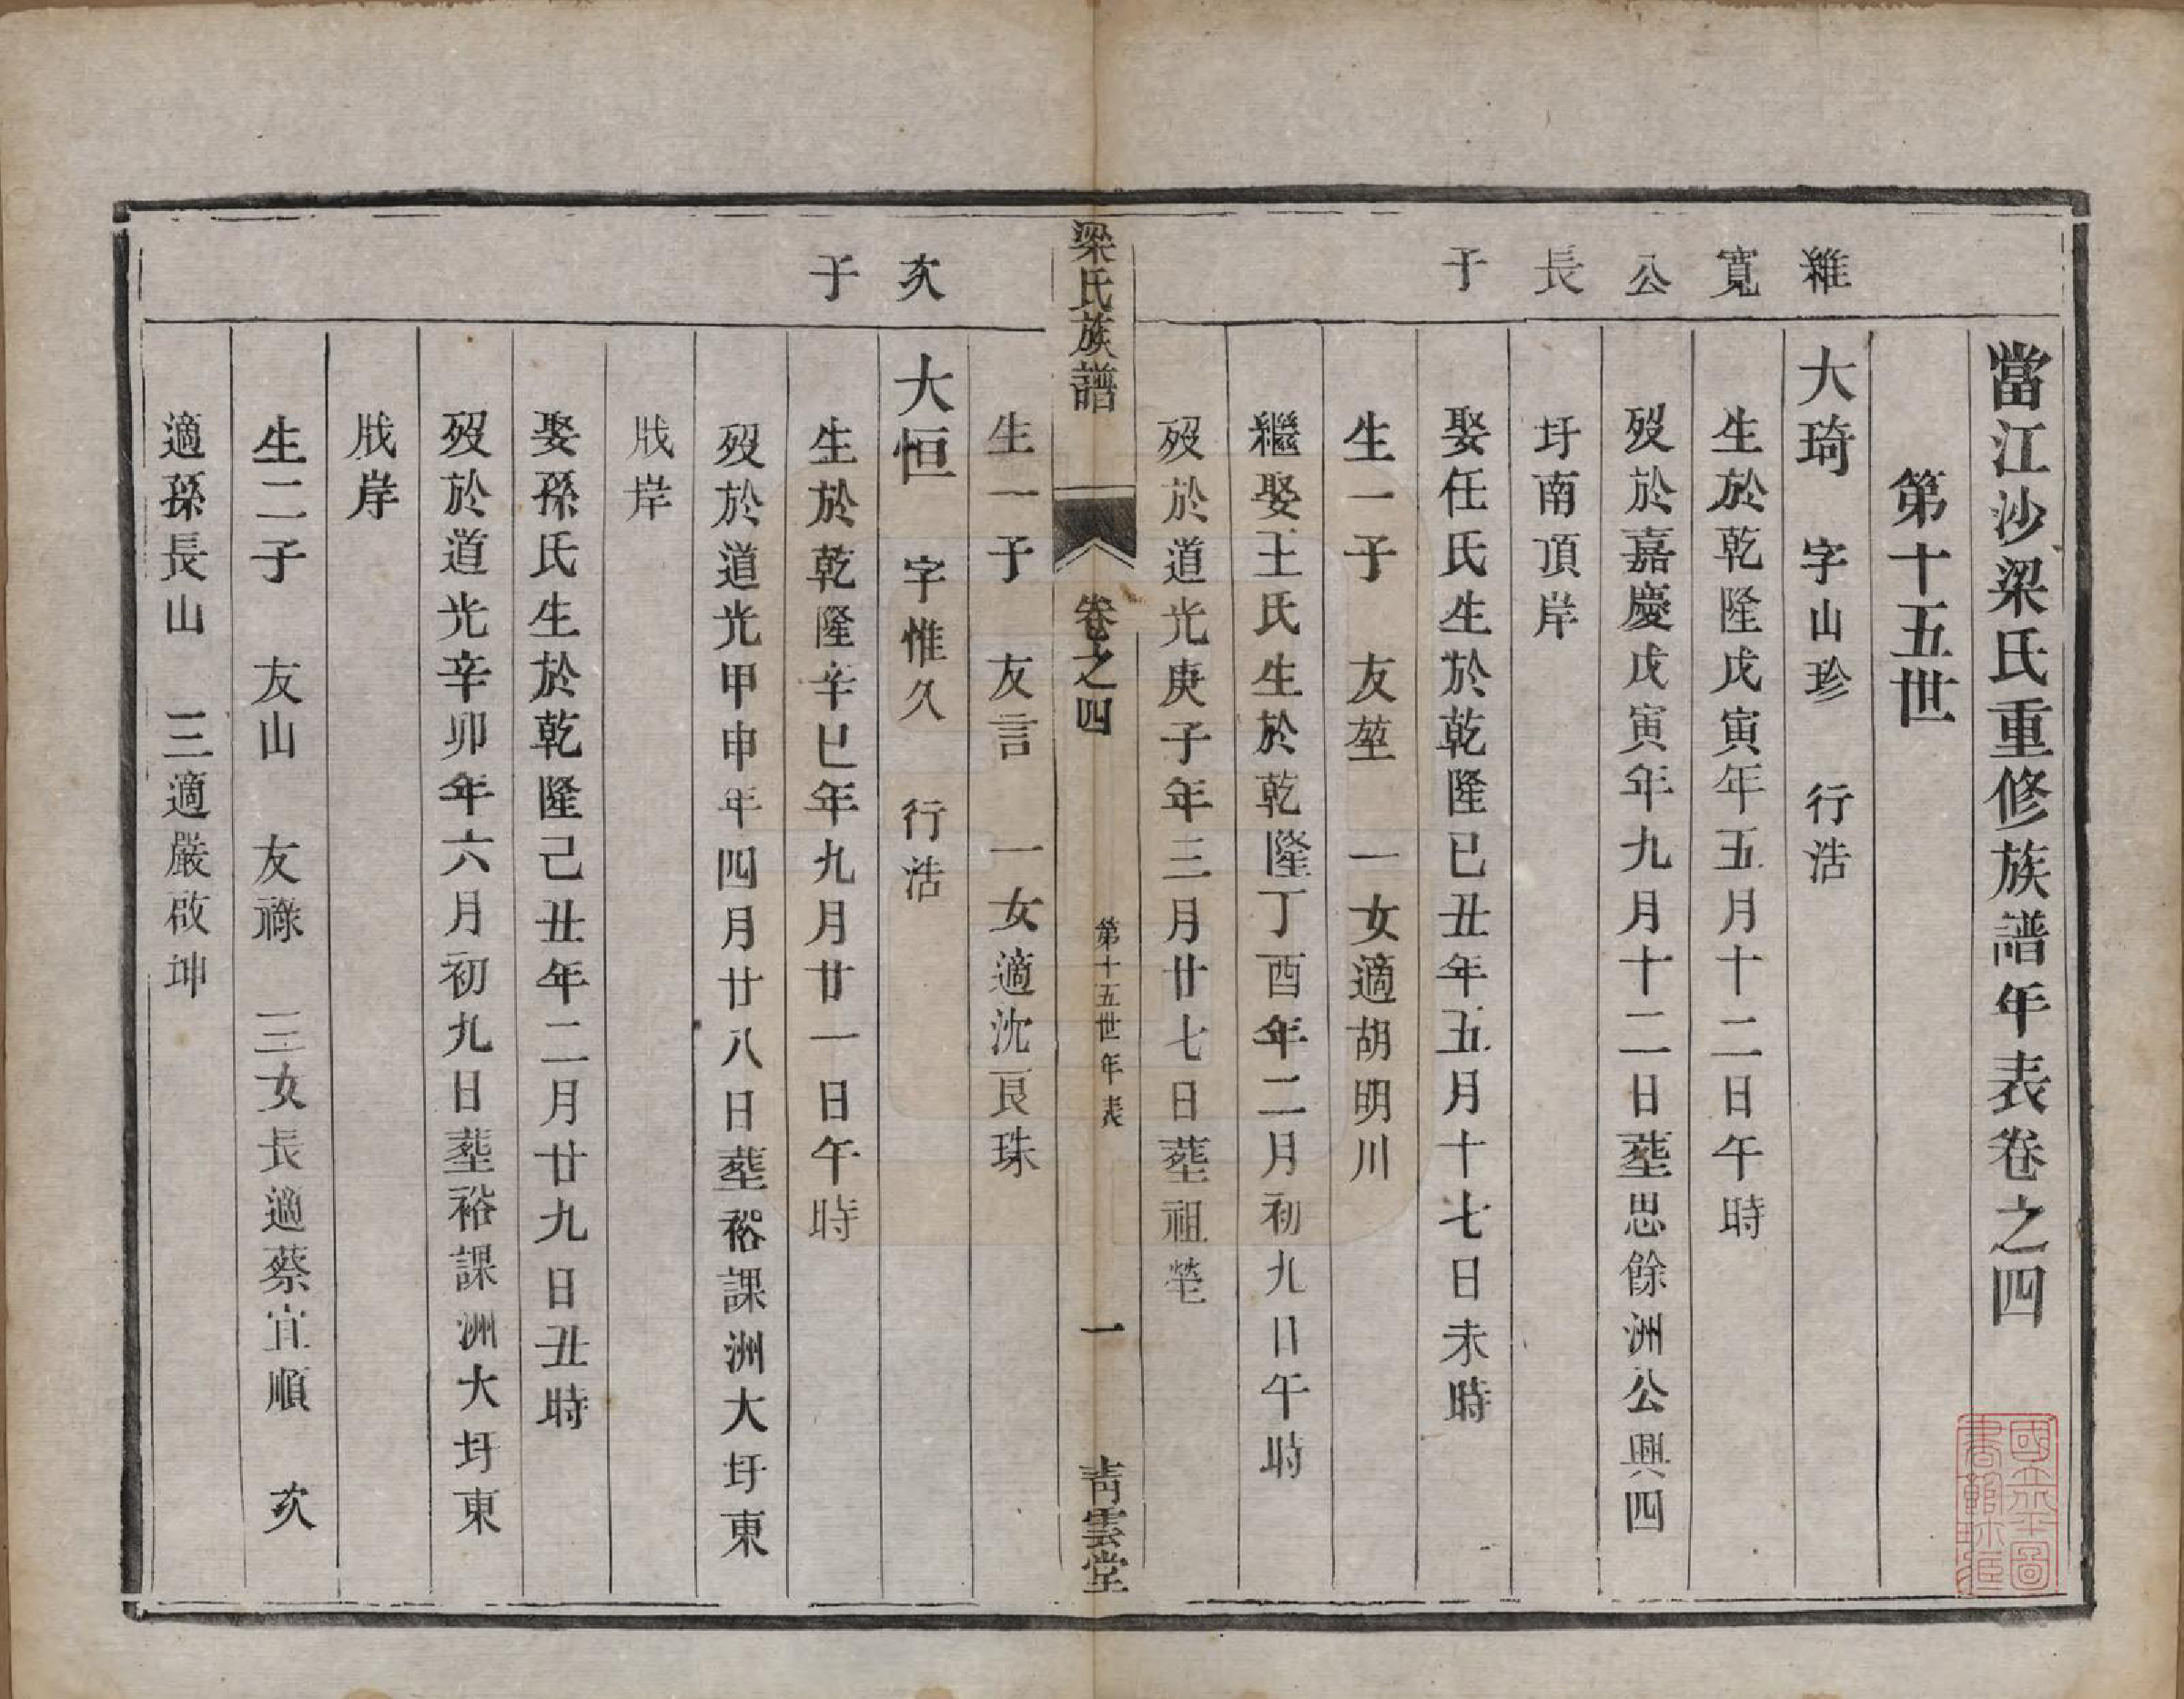 當江沙梁氏重修族譜年表卷之四
第十五世
維寬公長子
大琦 字山珍 行浩
生於乾隆戊寅年五月十二日午時
歿於嘉慶戊寅年九月十二日塟思餘洲公興四
圩南頂岸
娶任氏生於乾隆己丑年五月十七日未時
生一子 友堃 一女適胡明川
繼娶王氏生於乾隆丁酉年二月初九日午時
歿於道光庚子年三月廿七日塟祖塋
梁氏族譜 卷之四 第十五世年表 一 青雲堂
生一子 友言 一女適沈良珠
次子
大恒 字惟久 行浩
生於乾隆辛巳年九月廿一日午時
歿於道光甲申年四月廿八日塟裕課洲大圩東
戕岸
娶孫氏生於乾隆己丑年二月廿九日丑時
歿於道光辛卯年六月初九日塟裕課洲大圩東
戕岸
生二子 友山 友祿 三女長適蔡宜順 次
適孫長山 三適嚴啟坤